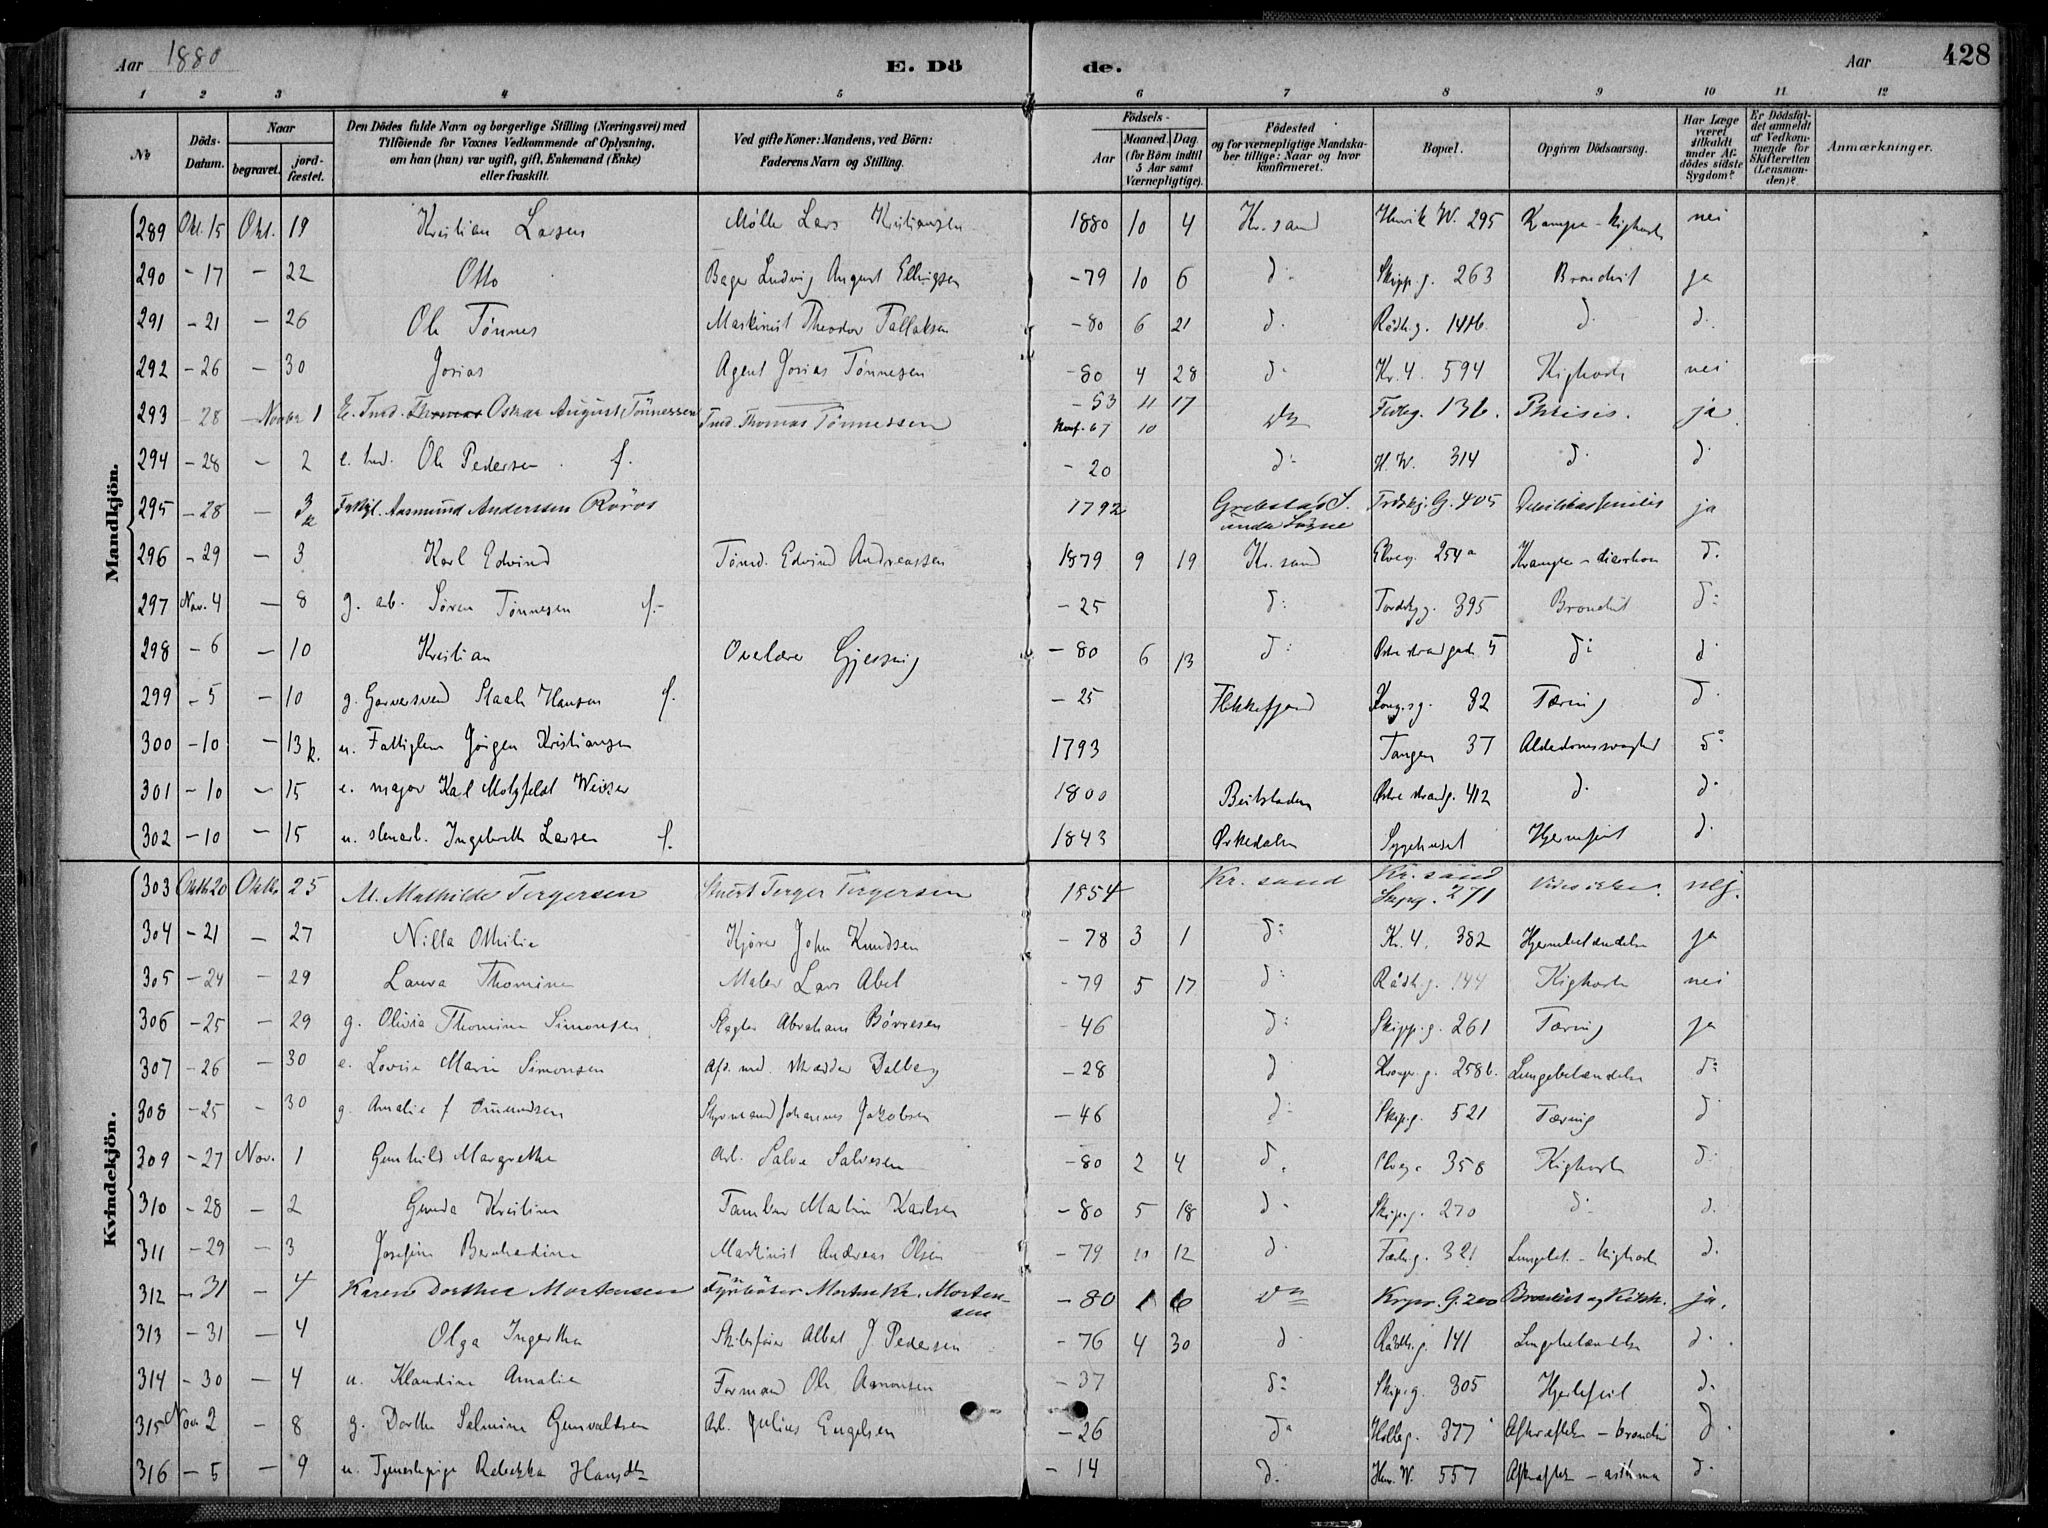 Aar 1880 E. Dö de. Aar 428
1 2 3 4 5 6 7 8 9 10 11 12
No. Döds-Datum. Naar begravet. jord-fæstet. Den Dödes fulde Navn og borgerlige Stilling (Næringsvei) med Tilföiende for Voxnes Vedkommende af Oplysning, om han (hun) var ugift, gift, Enkemand (Enke) eller fraskilt. Ved gifte Koner: Mandens, ved Börn: Faderens Navn og Stilling. Födsels- Aar Maaned. Dag. (for Börn indtil 5 Aar samt Værnepligtige). Födested og for værnepligtige Mandska-ber tillige: Naar og hvor konfirmeret. Bopæl. Opgiven Dödsaarsag. Har Læge været tilkaldt under Af-dödes sidste Sygdom? Er Dödsfal-det anmeldt af Vedkom-mende for Skifteretten (Lensman-den)? Anmærkninger.
Mandkjön.
289 Okt. 15 Okt. 19 Kristian Larsen Mölle Lars Kristiansen 1880 10 4 Kr.sand Henrik W. 295 Krampe - Kighoste nei
290 - 17 - 22 Otto Bager Ludvig August Ellingsen - 79 10 6 d: Skipp.g. 263 Bronchit ja
291 - 21 - 26 Ole Tønnes Maskinist Theodor Tallaksen - 80 6 21 d. Rådh.g. d. d.
292 - 26 - 30 Josias Agent Josias Tønnesen - 80 4 28 d. Kr. 4. 594 Kighoste nei
293 - 28 - Novbr 1 Oskar August Tönnessen Tmd. Thomas Tönnessen - 53 11 17 Konf. 67 10 Phtisis. ja
294 - 28 - 2 e. Ole Pedersen f. - 20 d: H.W. 314 d. d.
295 - 28 - 3 Aasmund Anderssen Röros 1792 under Søgne G. 405 ja
296 - 29 - 3 Karl Edvind Tømd. Edvind Andreassen 1879 9 19 Kr.sand Elveg. 254a Krampe - diarrhoe d.
297 Nov. 4 - 8 g. arb. Sören Tønnesen f. - 25 d: 395 Bronchit d:
298 - 6 - 10 Kristian Gjessing - 80 6 13 d: Østre strandgade 5 d: d.
299 - 5 - 10 g. Garversvend Staale Hansen f. - 25 Flekkefjord Kongsg. 32 Tæring d.
300 - 10 - 13 k. u. Fattiglem Jörgen Kristiansen 1793 Tangen 37 d:
301 - 10 - 15 e. major Karl Motzfeldt Weiser 1800 Beitstaden Østre strandg. 412 d. d.
302 - 10 - 15 u. stenarb. Ingebreth Larsen f. 1843 Ørkedalen Sygehuset d.
Kvindekjön.
303 Oktb 20 Oktb. 25 M. Mathilde Tergersen Terger Tergersen 1854 Kr.sand Kr.sand Skipg. 271 nej.
304 - 21 - 27 Nilla Othilie Kjører John Knudsen - 78 3 1 d: Kr. 4. 382 Hjernebetændelse ja
305 - 24 - 29 Laura Thomine Maler Lars Abel - 79 5 17 d: Rådh.g. 144 Kighoste nei
306 - 25 - 29 g. Olivia Thomine Simonsen Slagter Abraham Börresen - 46 d: Skipp.g. 261 Tæring ja
307 - 26 - 30 e. Lovise Marie Simonsen Afd. md. skrædder Dalberg - 28 d Krongr.g. 258b. Lungebetændelse d:
308 - 25 - 30 g. Amalie f Omundsen Styrmand Johannes Jakobsen - 46 d: Skip.g. 521 Tæring d
309 - 27 Nov. 1 Gunhild Margrethe Arb. Salve Salvesen - 80 2 4 d. Elveg. 358 Kighoste d.
310 - 28 - 2 Gunda Kristine Tambur Martin Karlsen - 80 5 18 d. Skip.g. 270 d. d.
311 - 29 - 3 Josefine Bernhardine Maskinist Andreas Olsen - 79 11 12 d. 321 Lungebet. - kighoste d.
312 - 31 - 4 Karen Dorthea Mortensen Fyrböter Mortensen - 80 1 6 Krpr. G. 200 Bronkit og Kikh. ja.
313 - 31 - 4 Olga Ingertha Skibsfører Albert J. Pedersen - 76 4 30 d. Rådh.g. 141 Lungebetændelse d.
314 - 30 - 4 u. Klaudine Amalie Formand Ole Amonsen - 37 d: Skip.g. 305 Hjertefeil d.
315 Nov 2 - 8 g. Dorthe Salmine Gunvaldsen Arb. Julius Engelsen - 26 d: Holbg. 377 Afkræftelse - bronchi d
316 - 5 - 9 u. Tjenestepige Rebekka Hansdtr - 14 d. Hen. W. 557 Afkræftelse - asthma d.